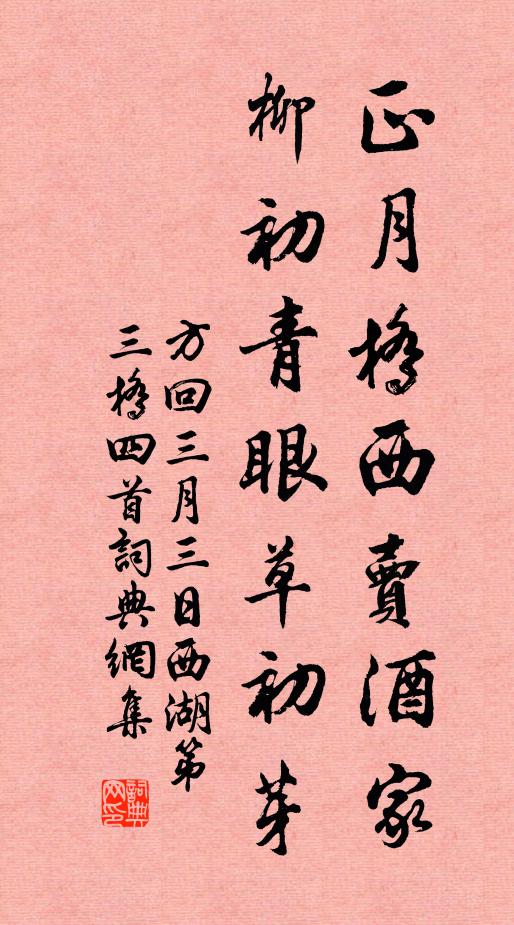 正月橋西賣酒家
柳初青眼草初芽
方回三月三日西湖第
三橋四首詞典網集
詞典
网印